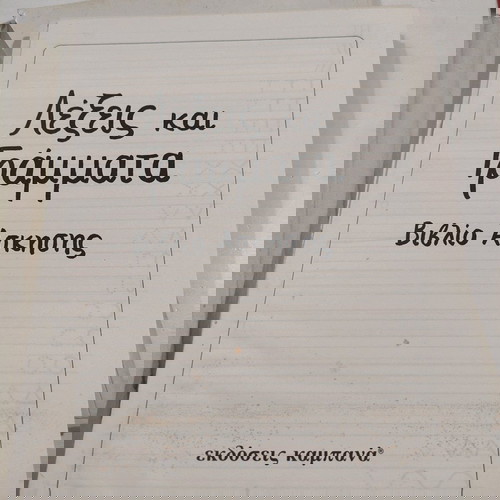 Λέξεις και
Γράμματα
Βιβλίο Άσκησης
εκδόσεις καμπανά®